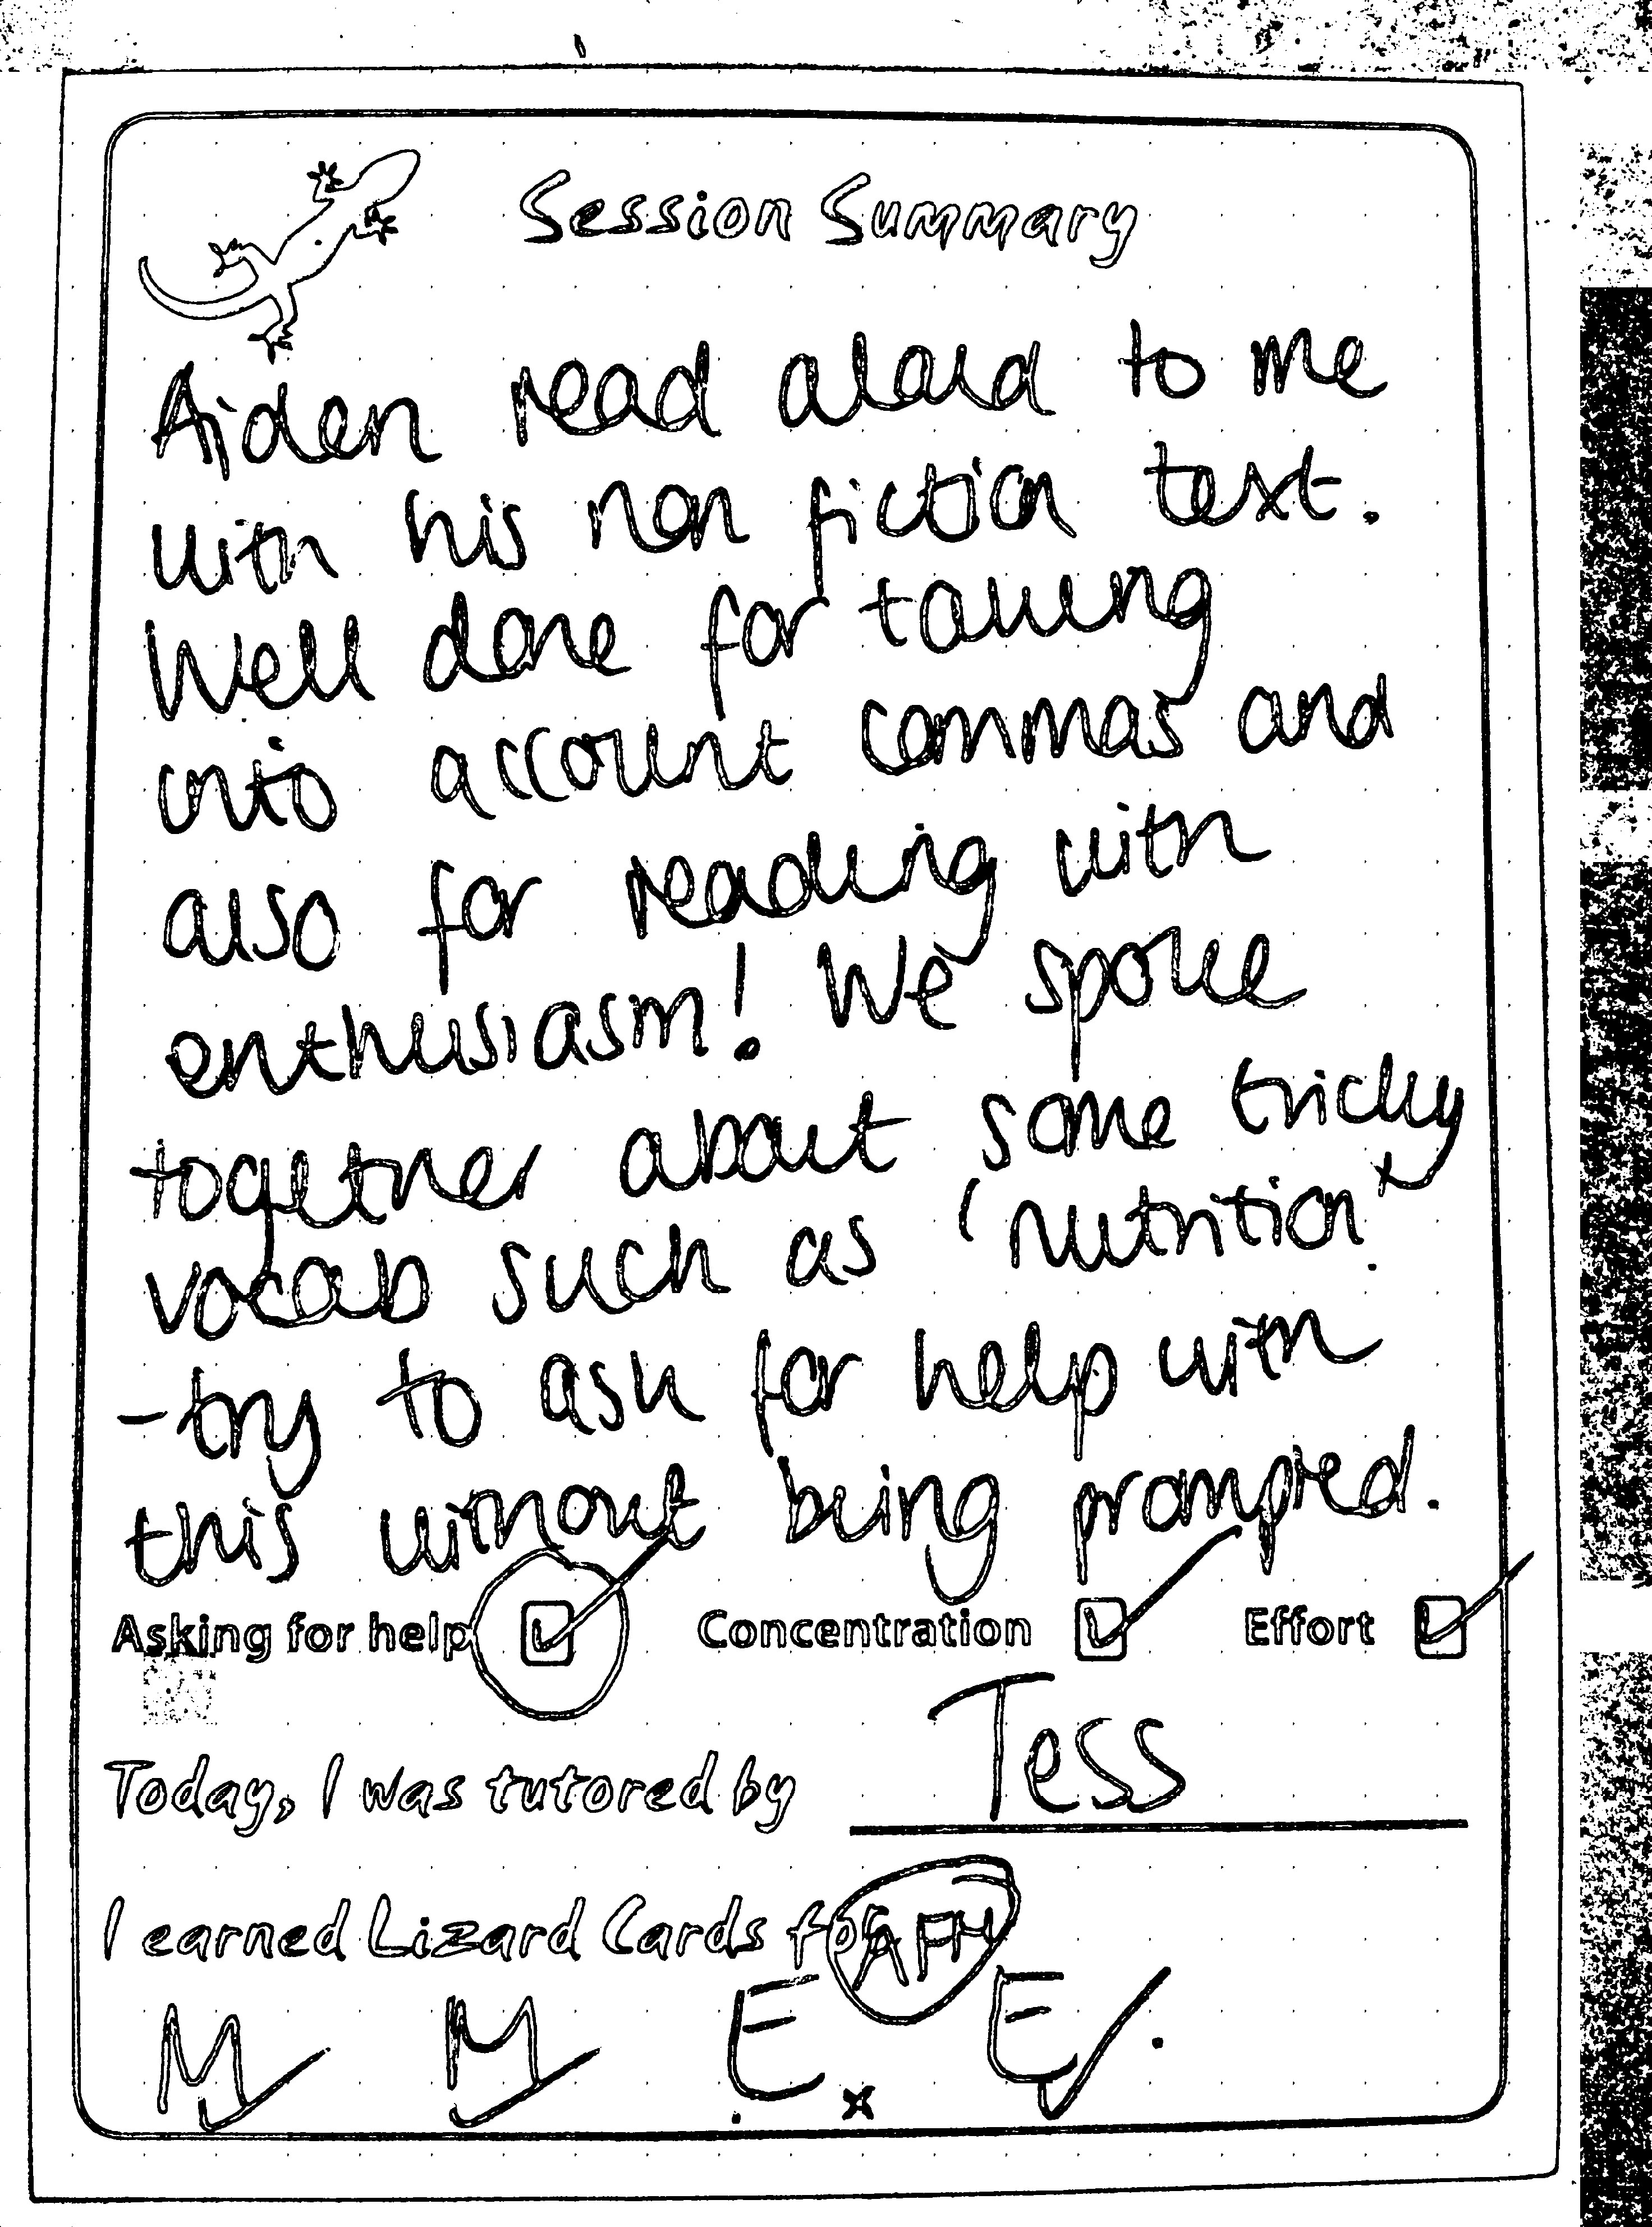 Session Summary
Aiden read aloud to me
with his non fiction text.
Well done for taking
into account commas and
also for reading with
enthusiasm! We spoke
together about some tricky
vocab such as 'nutrition'
-try to ask for help with
this without being prompted.
Asking for help Concentration Effort
Today, I was tutored by Tess
I earned Lizard Cards for AFH
M M E E